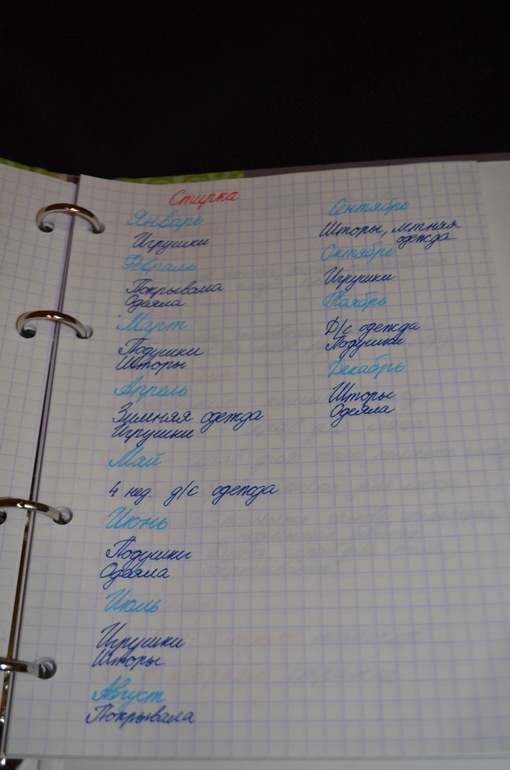 Стирка
Январь
Игрушки
Февраль
Покрывала
Одеяла
Март
Подушки
Шторы
Апрель
Зимняя одежда
Игрушки
Май
4 нед. д/с одежда
Июнь
Подушки
Одеяла
Июль
Игрушки
Шторы
Август
Покрывала
Сентябрь
Шторы, летняя
одежда
Октябрь
Игрушки
Ноябрь
Д/с одежда
Подушки
Декабрь
Шторы
Одеяла